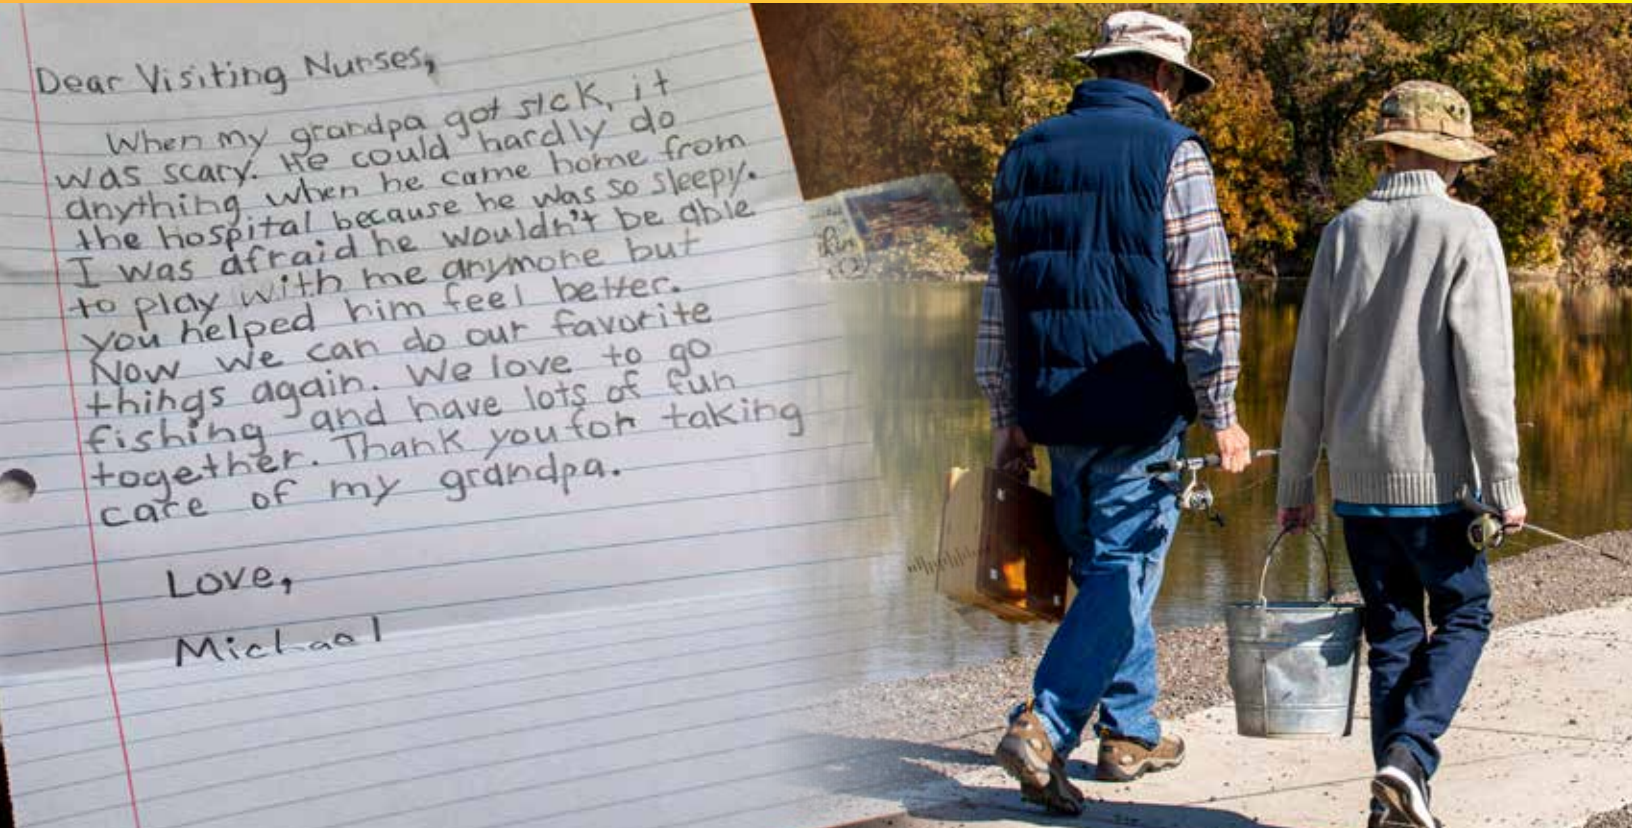 Dear Visiting Nurses,
When my grandpa got sick, it
was scary. He could hardly do
anything when he came home from
the hospital because he was so sleepy.
I was afraid he wouldn't be able
to play with me anymore but
you helped him feel better.
Now we can do our favorite
things again. We love to go
fishing and have lots of fun
together. Thank you for taking
care of my grandpa.
Love,
Michael